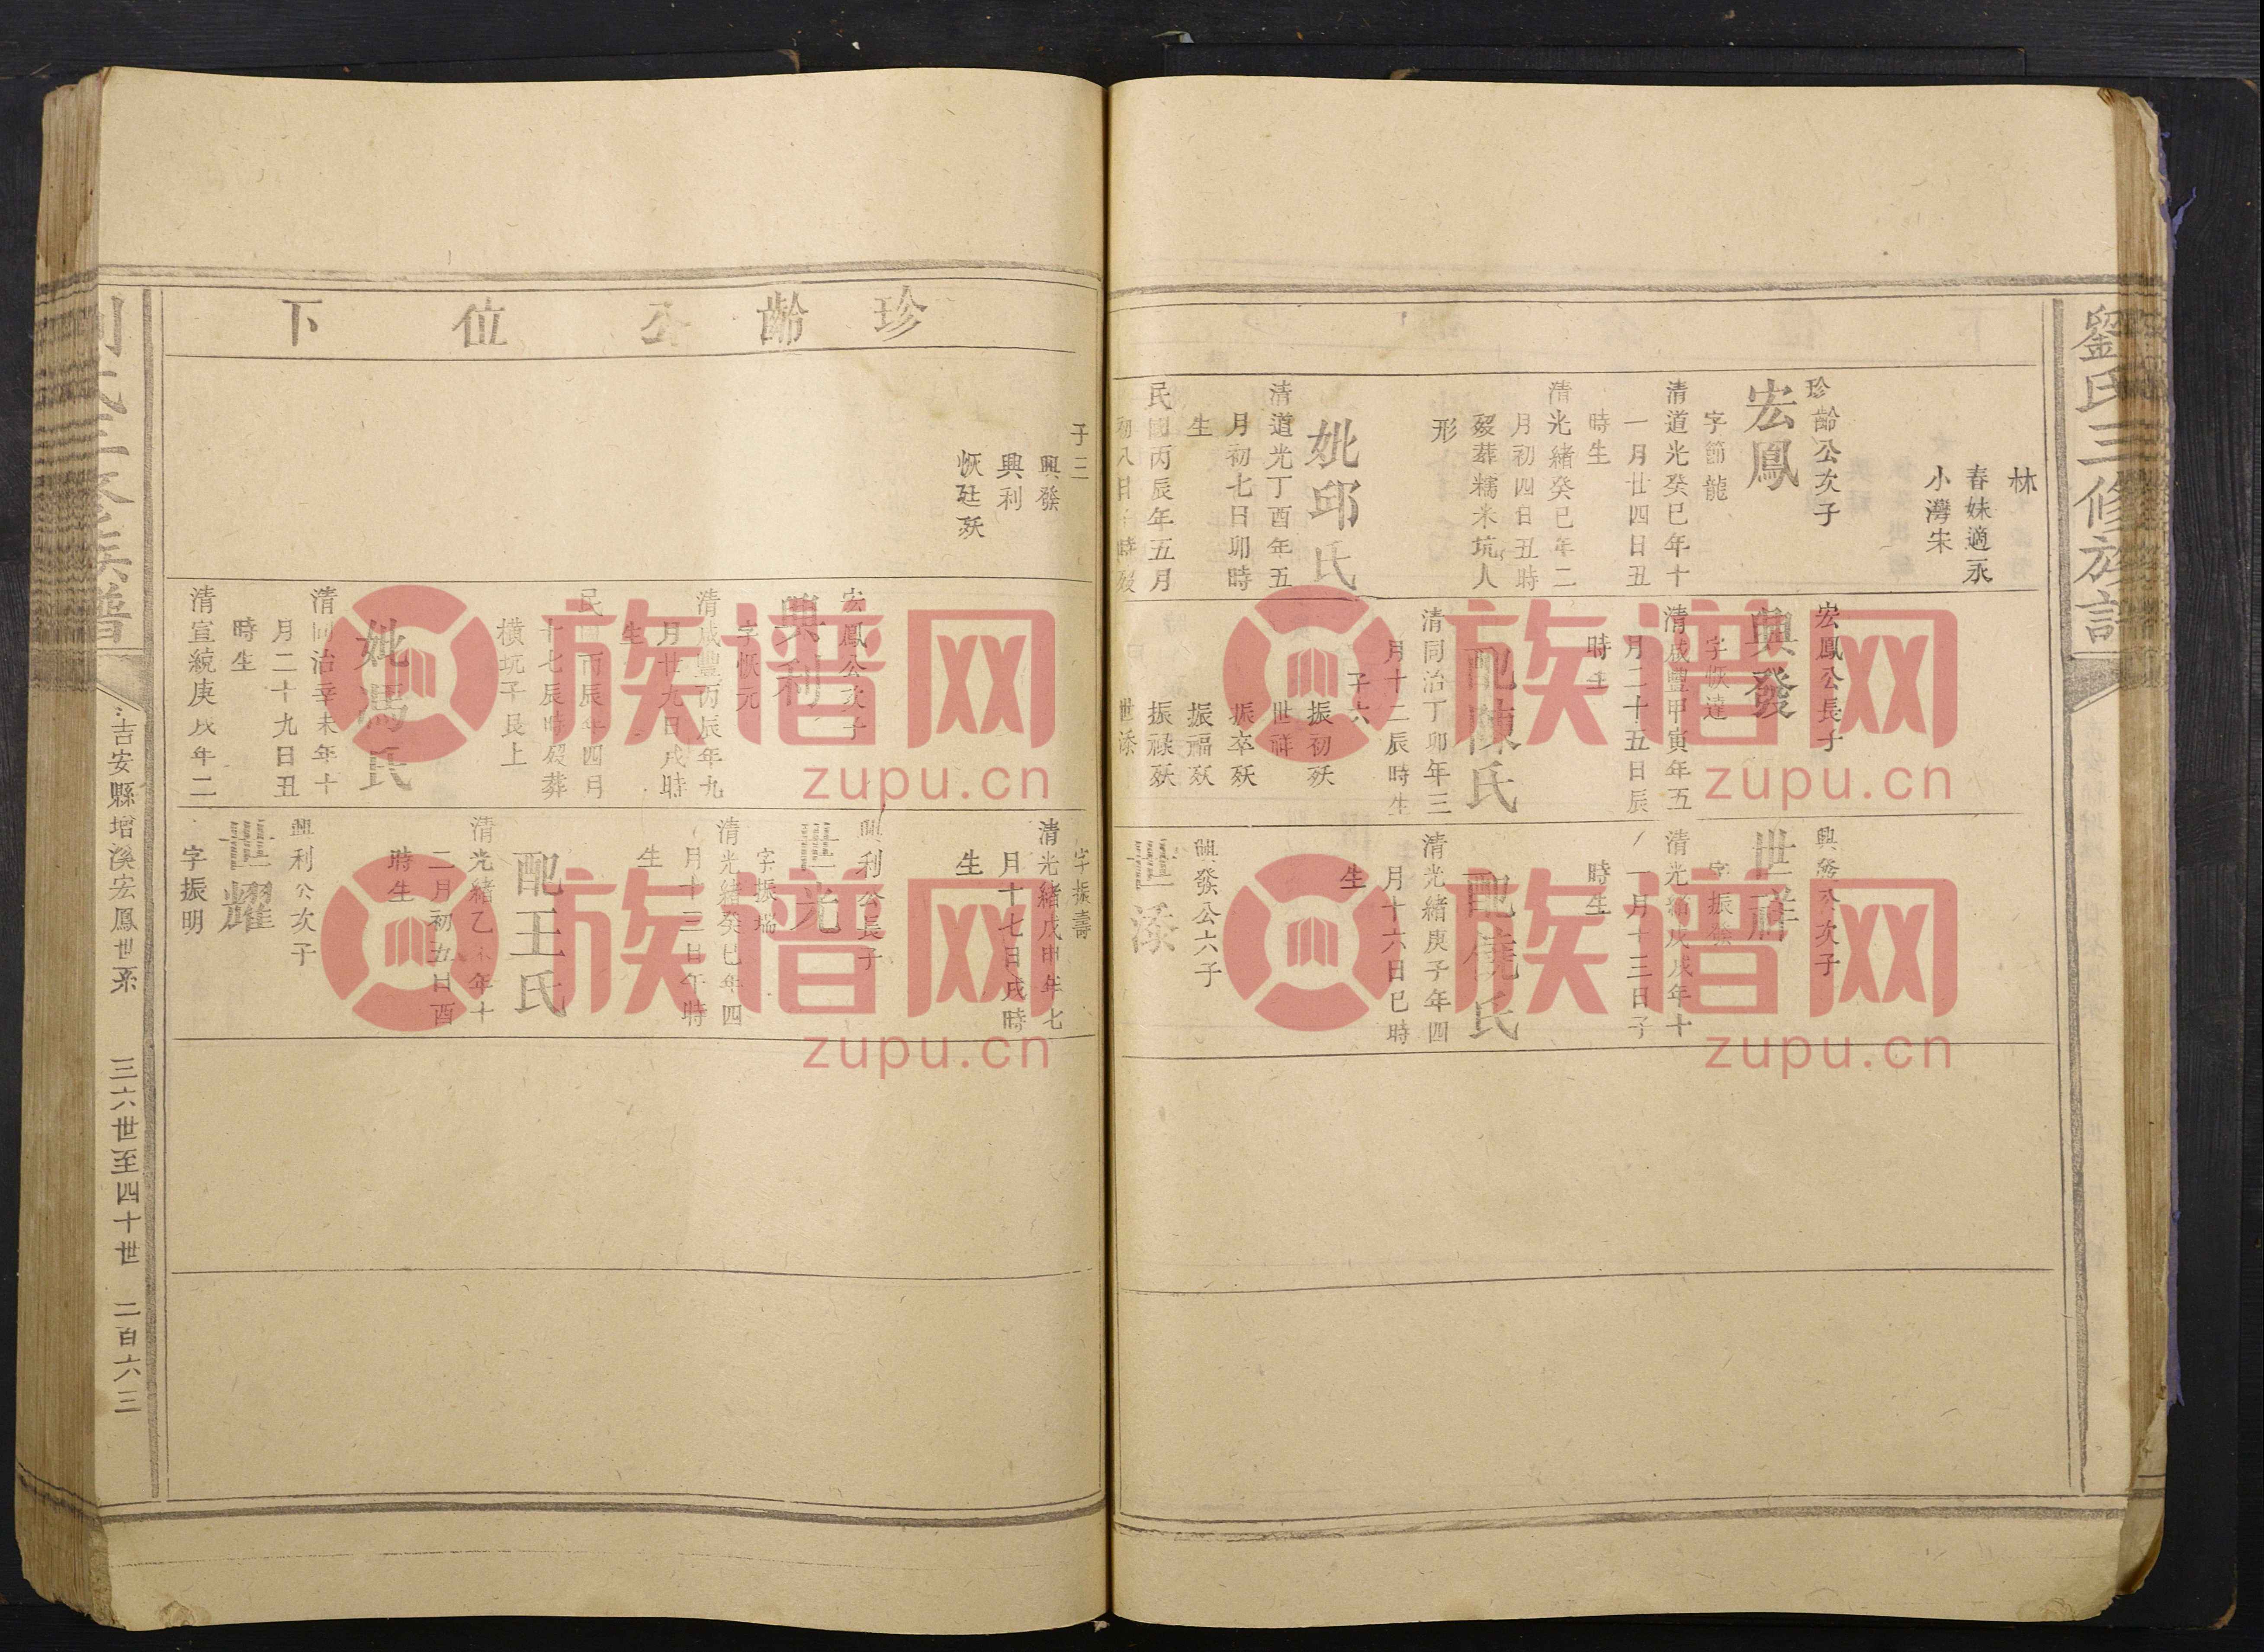 劉氏三修族譜
林
春妹適永
小灣宋
珍齡公次子
宏鳳
字節龍
清道光癸巳年十
一月廿四日丑
時生
清光緒癸巳年二
月初四日丑時
歿葬糯米坑人
形
妣邱氏
清道光丁酉年五
月初七日卯時
生
民國丙辰年五月
初八日子時歿
宏鳳公長子
興發
字恢達
清咸豐甲寅年五
月二十五日辰
時生
配陳氏
清同治丁卯年三
月十二辰時生
子六
振初殀
世祥
振卒殀
振福殀
振祿殀
世添
興發公次子
世祥
字振發
清光緒戊戌年十
一月十三日子
時生
配饒氏
清光緒庚子年四
月十六日巳時
生
興發公六子
世添
珍齡公位下
子三
興發
興利
恢廷殀
宏鳳公次子
興利
字恢元
清咸豐丙辰年九
月廿九日戌時
生
民國丙辰年四月
十七辰時歿葬
橫坑子艮上
妣馮氏
清同治辛未年十
月二十九日丑
時生
清宣統庚戌年二
字振壽
清光緒戊申年七
月十七日戌時
生
興利公長子
世光
字振瑞
清光緒癸巳年四
月十三日午時
生
配王氏
清光緒乙未年十
二月初五日酉
時生
興利公次子
世耀
字振明
吉安縣增溪宏鳳世系
三六世至四十世
二百六三
族谱网
zupu.cn
族谱网
zupu.cn
族谱网
zupu.cn
族谱网
zupu.cn